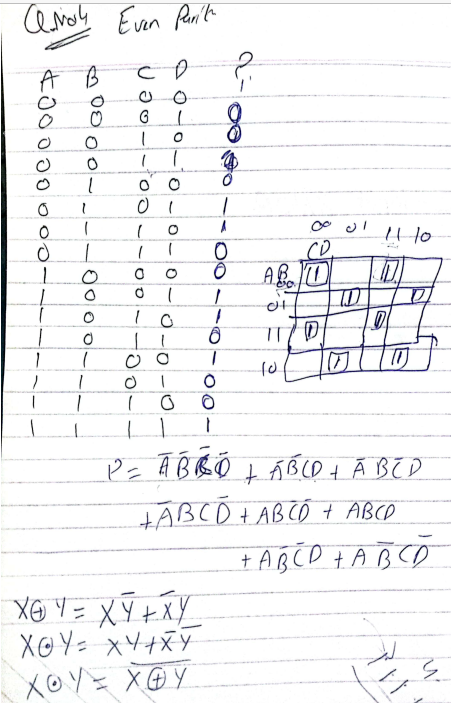 Even Parity
A B C D P
0 0 0 0 1
0 0 0 1 0
0 0 1 0 0
0 0 1 1 1
0 1 0 0 0
0 1 0 1 1
0 1 1 0 1
0 1 1 1 0
1 0 0 0 0
1 0 0 1 1
1 0 1 0 1
1 0 1 1 0
1 1 0 0 1
1 1 0 1 0
1 1 1 0 0
1 1 1 1 1
00 01 11 10
CD
AB
00 1 1
01 1 1
11 1 1
10 1 1
P = A̅B̅C̅D̅ + A̅B̅CD + A̅BC̅D
+ A̅BCD̅ + ABC̅D̅ + ABCD
+ AB̅C̅D + AB̅CD̅
X⊕Y = XY̅ + X̅Y
X⊙Y = XY + X̅Y̅
X⊙Y = X̅ ̅⊕̅ ̅Y̅